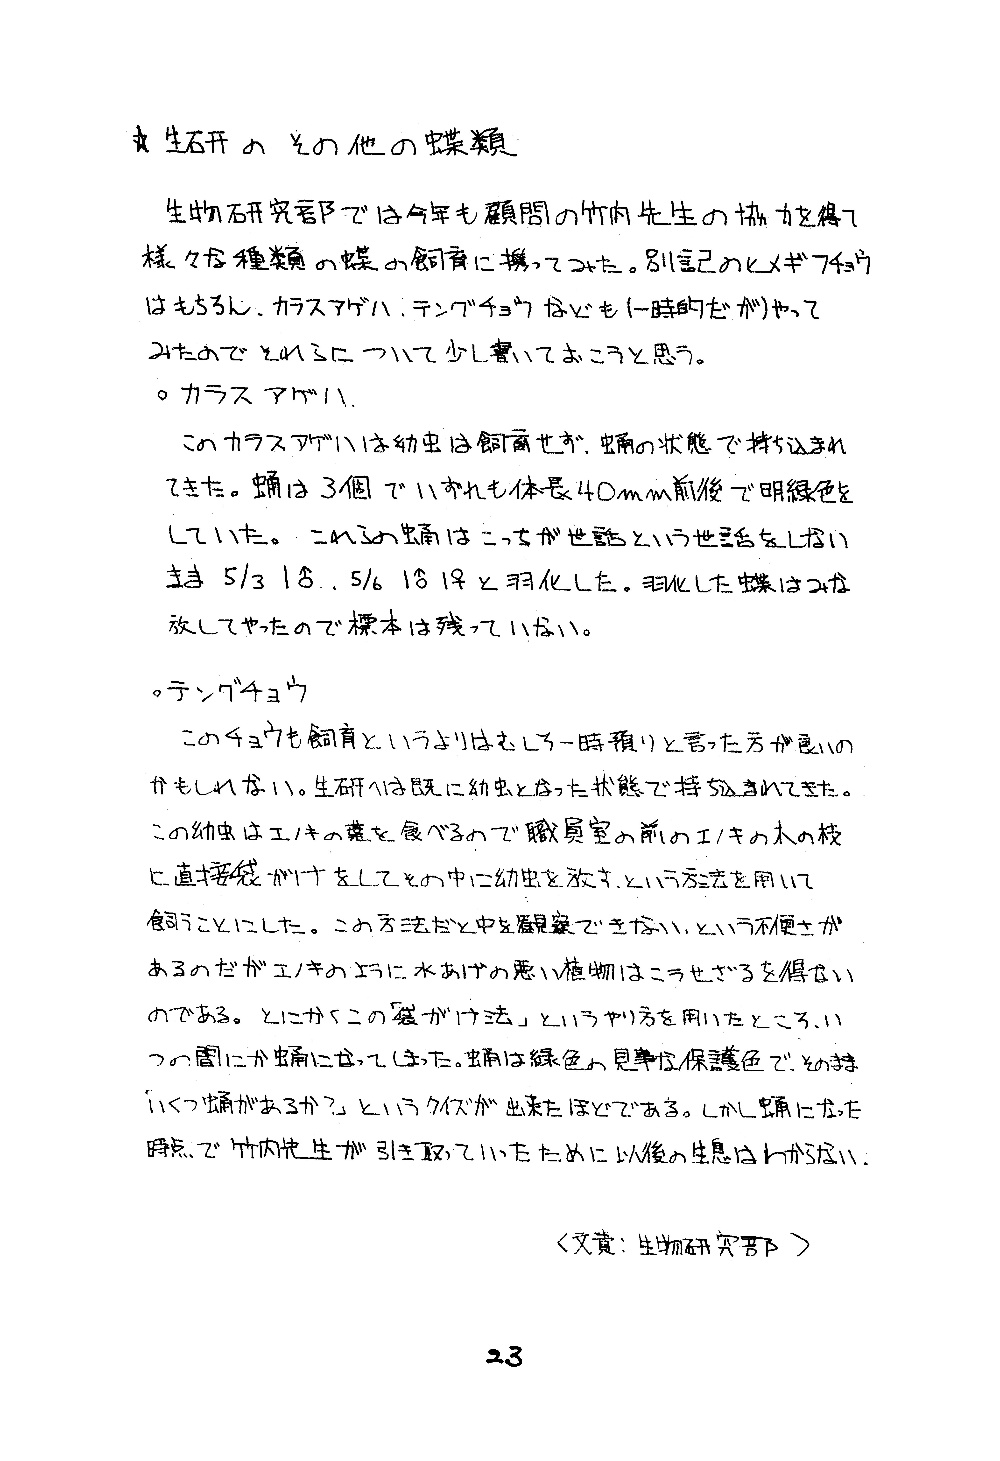 ☆ 生研の その他の蝶類
生物研究部では今年も顧問の竹内先生の協力を得て
様々な種類の蝶の飼育に携ってみた。別記のヒメギフチョウ
はもちろん、カラスアゲハ、テングチョウなども(一時的だが)やって
みたのでそれらについて少し書いておこうと思う。
○ カラスアゲハ
このカラスアゲハは幼虫は飼育せず、蛹の状態で持ち込まれ
てきた。蛹は3個でいずれも体長40mm前後で明緑色を
していた。これらの蛹はこっちが世話という世話をしない
まま 5/3 1♂、5/6 1♂1♀と羽化した。羽化した蝶はみな
放してやったので標本は残っていない。
○テングチョウ
このチョウも飼育というよりはむしろ一時預りと言った方が良いの
かもしれない。生研へは既に幼虫となった状態で持ち込まれてきた。
この幼虫はエノキの葉を食べるので職員室の前のエノキの木の枝
に直接袋がけをしてその中に幼虫を放す、という方法を用いて
飼うことにした。この方法だと中を観察できない、という不便さが
あるのだがエノキのように水あげの悪い植物はこうせざるを得ない
のである。とにかくこの「袋がけ法」というやり方を用いたところ、い
つの間にか蛹になってしまった。蛹は緑色の見事な保護色で、そのまま
「いくつ蛹があるか?」というクイズが出来たほどである。しかし蛹になった
時点で竹内先生が引き取っていったために以後の生息はわからない。
〈文責: 生物研究部〉
23